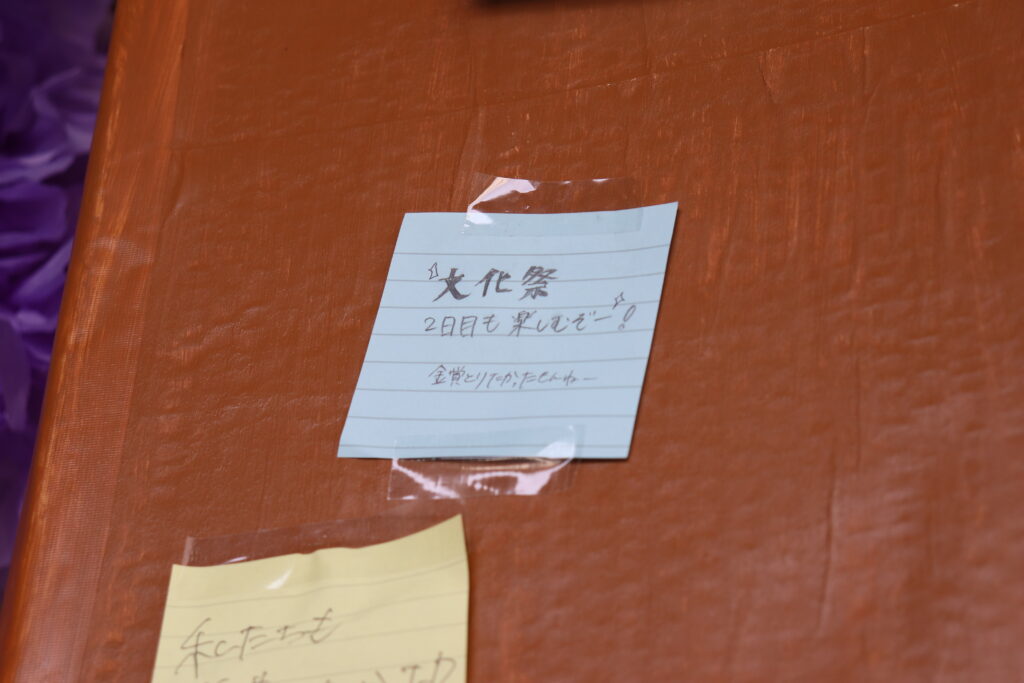 文化祭
2日目も楽しむぞー!
金賞とりたかったせんねー
私たちも